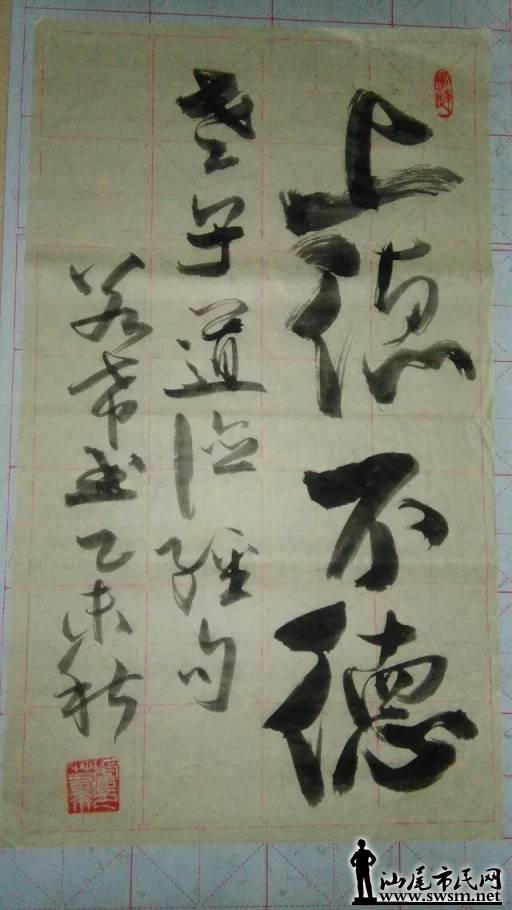 上德不德
老子道德經句
若常书乙未秋
汕尾市民网
www.swsm.net